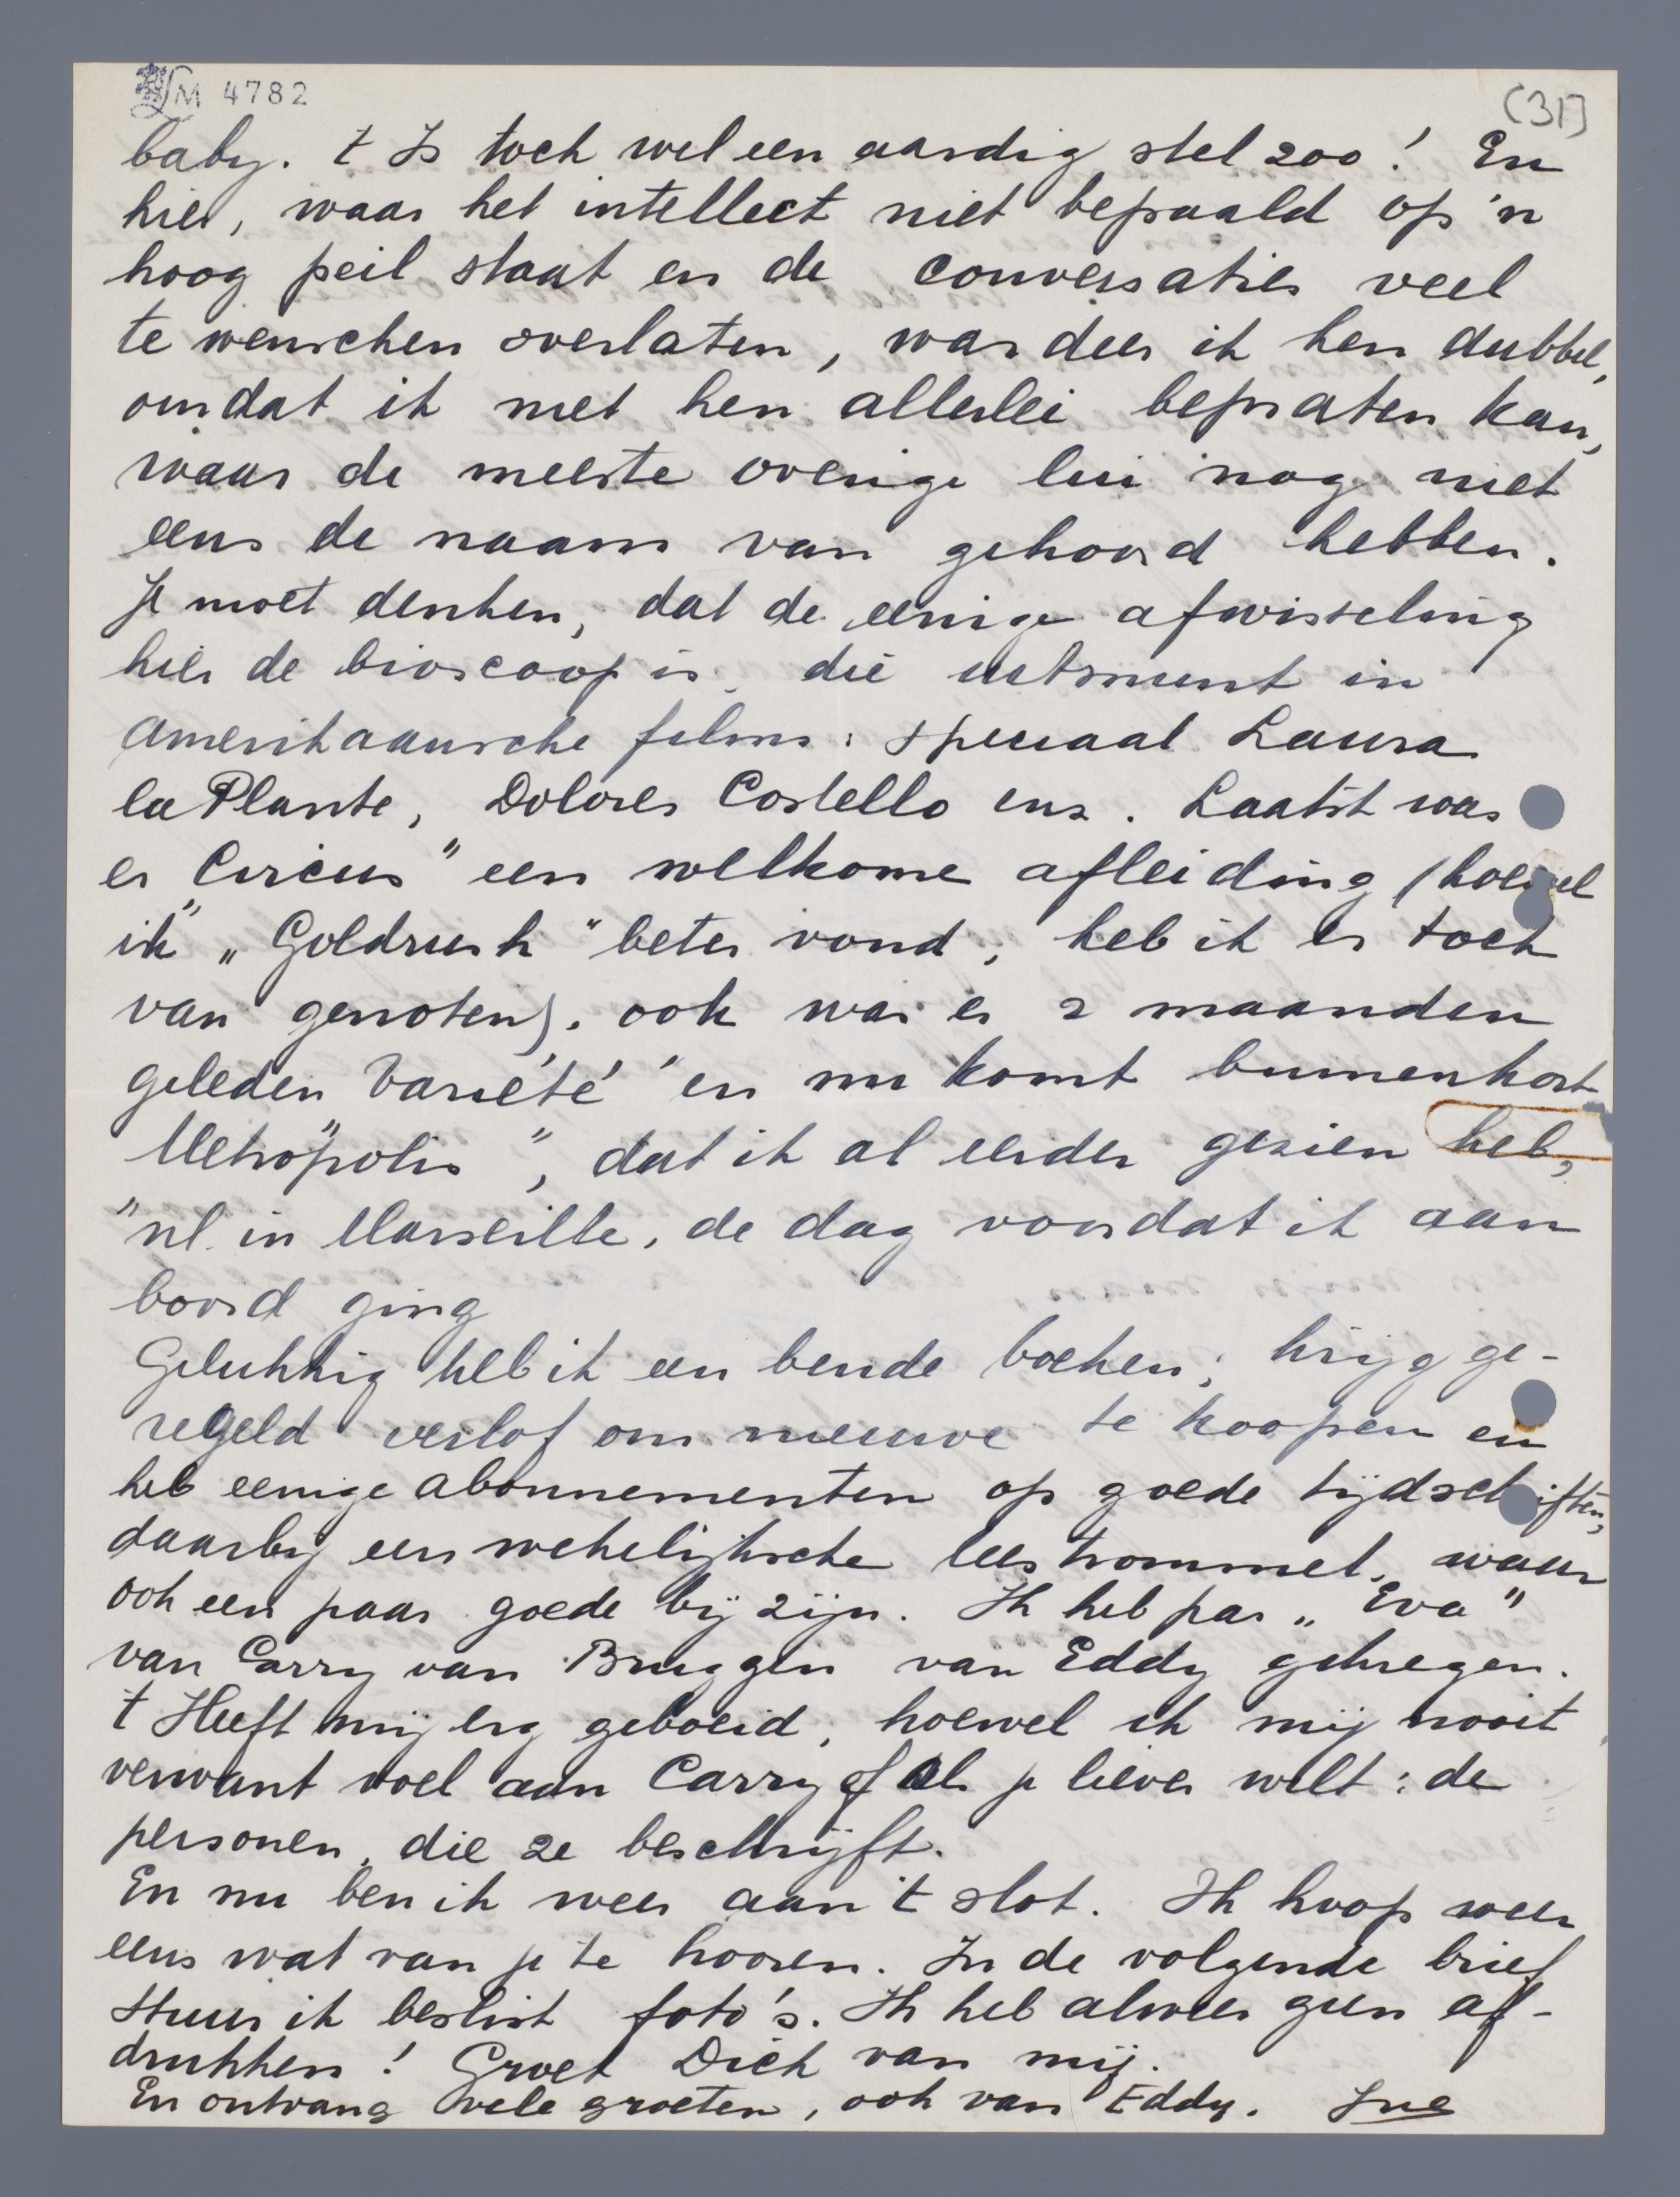 LM 4782
(31)
baby. 't Is toch wel een aardig stel zoo! En
hier, waar het intellect niet bepaald op 'n
hoog peil staat en de conversaties veel
te wenschen overlaten, wardeer ik hen dubbel,
omdat ik met hen allerlei bepraten kan,
waar de meeste overige lui nog niet
eens de naam van gehoord hebben.
Je moet denken, dat de eenige afwisseling
hier de bioscoop is, die uitmunt in
Amerikaansche films: speciaal Laura
la Plante, Dolores Costello enz. Laatst was
er „Circus" een welkome afleiding (hoewel
ik „Goldrush" beter vond, heb ik er toch
van genoten). ook was er 2 maanden
geleden „Variété" en nu komt binnenkort
„Metropolis", dat ik al eerder gezien heb,
nl. in Marseille, de dag voordat ik aan
boord ging
Gelukkig heb ik een bende boeken; krijg ge-
regeld verlof om nieuwe te koopen en
heb eenige abonnementen op goede tijdschriften,
daarbij een wekelijksche leestrommel, waar
ook een paar goede bij zijn. Ik heb pas „Eva"
van Carry van Bruggen van Eddy gekregen.
't Heeft mij erg geboeid, hoewel ik mij nooit
verwant voel aan Carry of als je liever wilt: de
personen, die ze beschrijft.
En nu ben ik weer aan 't slot. Ik hoop weer
eens wat van je te hooren. In de volgende brief
stuur ik beslist foto's. Ik heb alweer geen af-
drukken! Groet Dick van mij.
En ontvang vele groeten, ook van Eddy. Jug